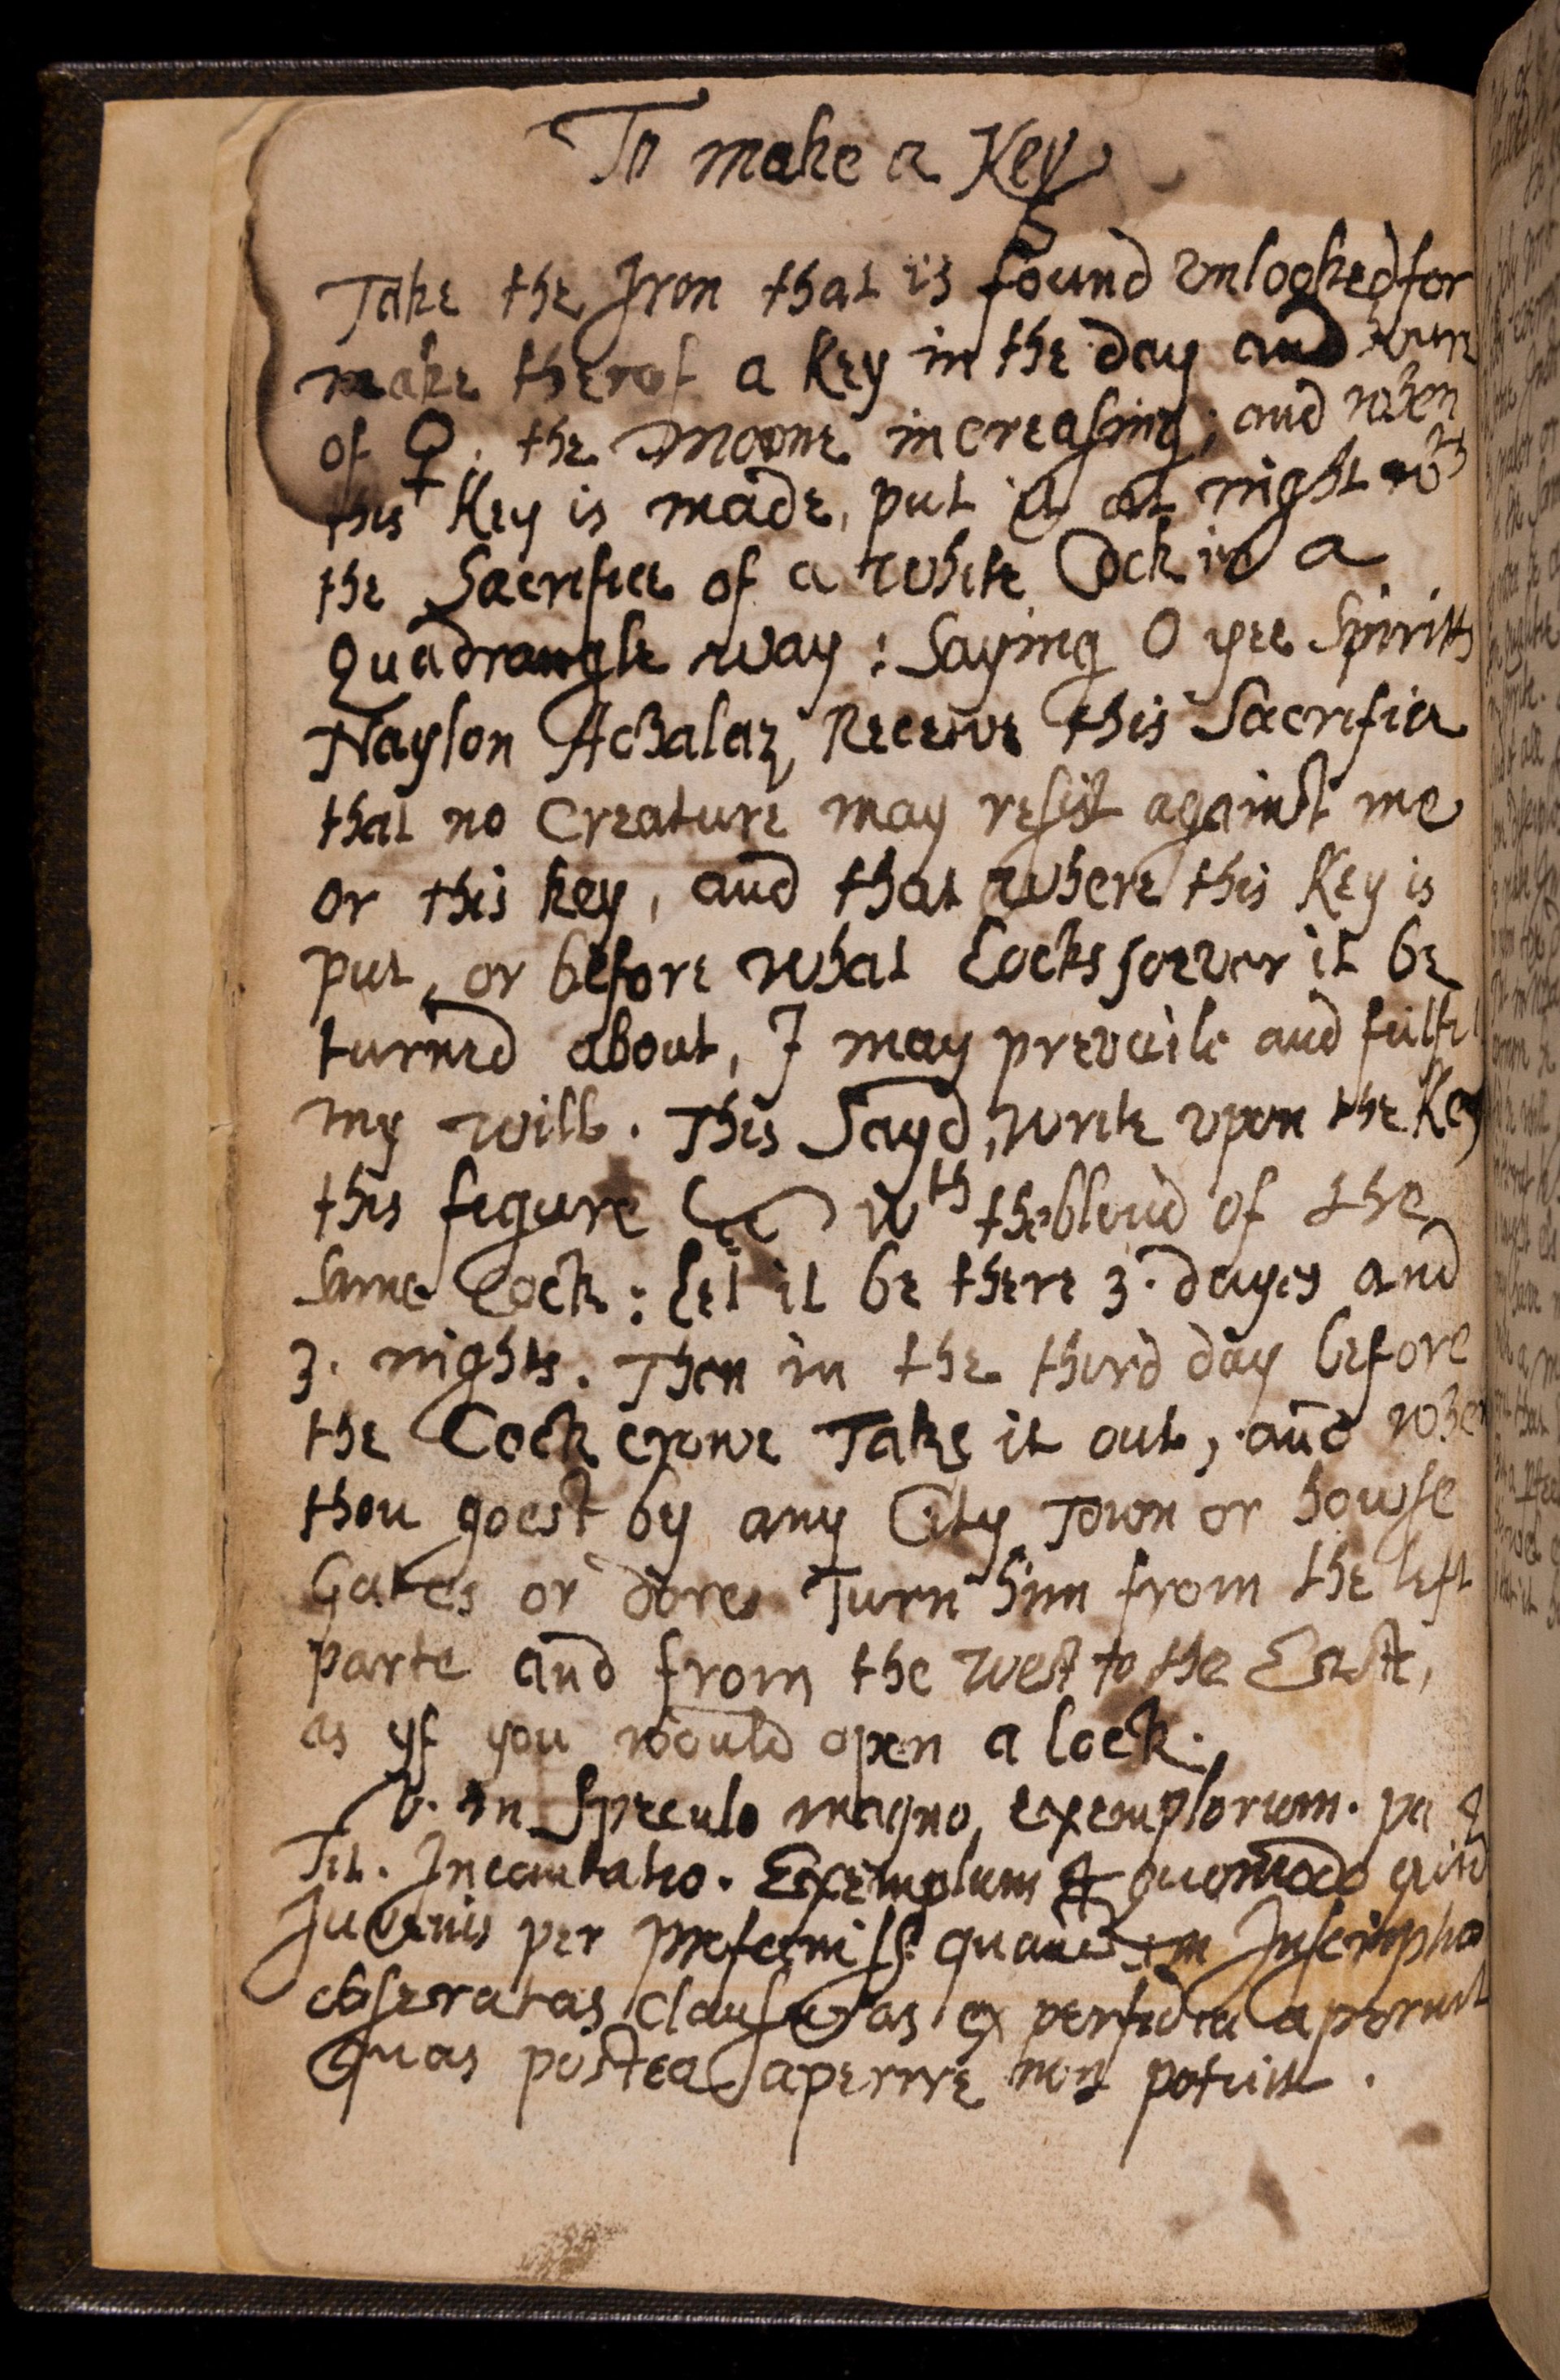 To make a Key
Take the Iron that is found vnlooked for
make therof a Key in the day and hour
of ♀. the Moone increasing; and when
this Key is made, put it at night wth
the Sacrifice of a white Cock in a
Quadrangle way: Saying O yee Spiritts
Naylon Achalaz, Receive this Sacrifice
that no Creature may resist against me
or this key, and that where this Key is
put, or before what Locks soever it be
turned about, I may prevaile and fulfil
my will. This Sayd, write vpon the Key
this figure wth the bloud of the
same Cock: let it be there 3. dayes and
3. nights. Then in the third day before
the Cock crowe Take it out, and when
thou goest by any City Town or howse
Gates or dores Turn him from the left
parte and from the west to the Easte,
as yf you would open a lock.
v. In Speculo magno, exemplorum.
Tit. Incantatio. Exemplum quomodo
Juvenis per
obseratas clausuras ex perfidia aperuit
quas postea aperire non potuit.